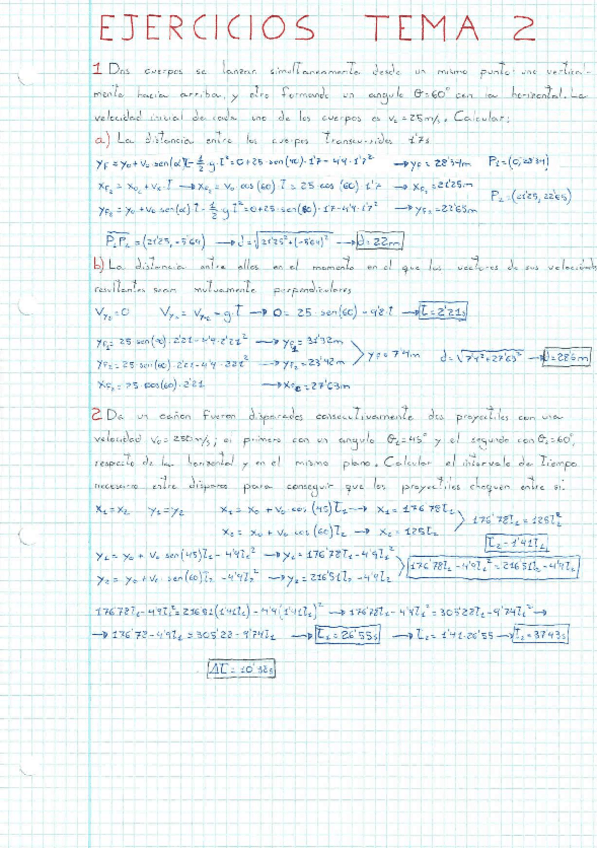 EJERCICIOS TEMA 2
1 Dos cuerpos se lanzan simultaneamente desde un mismo punto: uno vertical-
mente hacia arriba, y otro formando un angulo θ=60° con la horizontal. La
velocidad inicial de cada uno de los cuerpos es v₀=25m/s. Calcular:
a) La distancia entre los cuerpos transcurridos 1'7s
→ yf = 28'34m P₁=(0, 28'34)
→ xf₂ = 21'25m P₂=(21'25, 22'65)
→ yf₂ = 22'65m
P₁P₂=(21'25, -5'69) → d=√21'25²+(-5'69)² → d=22m
b) La distancia entre ellos en el momento en el que los vectores de sus velocidades
resultantes sean mutuamente perpendiculares
→ 0= 25·sen(60) -9'8t → t=2'21s
yf₁= 25·sen(90)·2'21 -4'9·2'21² → yf₁= 31'32m
yf₂= 25·sen(60)·2'21 -4'9·2'21² → yf₂= 23'92m yf= 7'4m d=√7'4²+27'63² → d=28'6m
xf₂= 25·cos(60)·2'21 → xf₂=27'63m
2 De un cañon fueron disparados consecutivamente dos proyectiles con una
velocidad v₀=250m/s; el primero con un angulo θ₁=45° y el segundo con θ₂=60°,
respecto de la horizontal y en el mismo plano. Calcular el intervalo de tiempo
necesario entre disparos para conseguir que los proyectiles choquen entre si.
x₁=x₂ y₁=y₂ x₁ = x₀ + v₀ cos (45)t₁ → x₁= 176'78t₁
x₂= x₀ + v₀ cos (60)t₂ → x₂= 125t₂
y₁= y₀ + v₀ sen(45)t₁ -4'9t₁² → y₁=176'78t₁ -4'9t₁²
y₂= y₀ + v₀ sen(60)t₂ -4'9t₂² → y₂= 216'51t₂ -4'9t₂² 176'78t₁ -4'9t₁² = 216'51t₂ -4'9t₂²
176'78t₁ -4'9t₁²=216'51(1'41t₁) -4'9(1'41t₁)² → 176'78t₁ -4'9t₁²= 305'28t₁ -9'74t₁² →
→ 176'78 -4'9t₁=305'28 -9'74t₁ → t₁=26'55s → t₂= 1'41·26'55 → t₂=37'43s